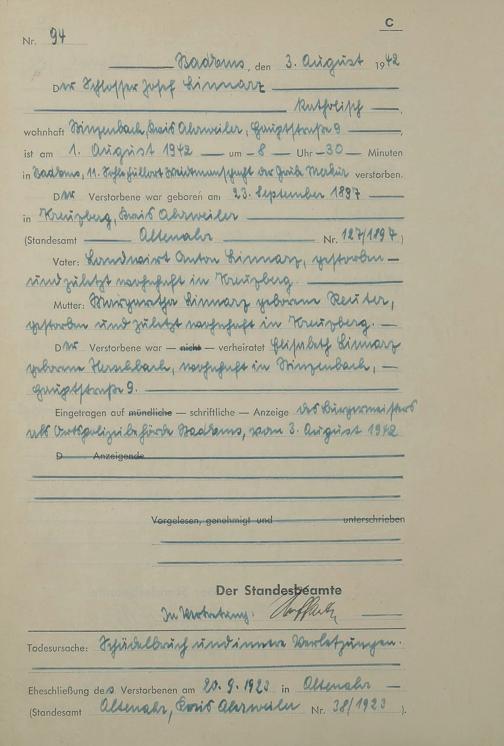 C
Nr. 94
Bad Ems, den 3. August 1942
Der Schlosser Josef Linnarz
Katholisch
wohnhaft Binzenbach, Kreis Ahrweiler, Hauptstraße 9
ist am 1. August 1942 um 8 Uhr 30 Minuten
in Bad Ems, 11. Sohle Füllort der Grube verstorben.
Der Verstorbene war geboren am 23. September 1897
in Kreuzberg, Kreis Ahrweiler
(Standesamt Altenahr Nr. 127/1897)
Vater: Landwirt Anton Linnarz, gestorben
und zuletzt wohnhaft in Kreuzberg.
Mutter: Margaretha Linnarz geborene Reuter,
gestorben und zuletzt wohnhaft in Kreuzberg.
Der Verstorbene war — nicht — verheiratet Elisabeth Linnarz
geborene wohnhaft in Binzenbach,
Hauptstraße 9.
Eingetragen auf mündliche — schriftliche — Anzeige des Bürgermeisters
als Ortspolizeibehörde Bad Ems, vom 3. August 1942
D Anzeigende
Vorgelesen, genehmigt und unterschrieben
Der Standesbeamte
In Vertretung:
Todesursache: Schädelbruch und innere Verletzungen.
Eheschließung des Verstorbenen am 20.9.1923 in Altenahr
(Standesamt Altenahr, Kreis Ahrweiler Nr. 38/1923).